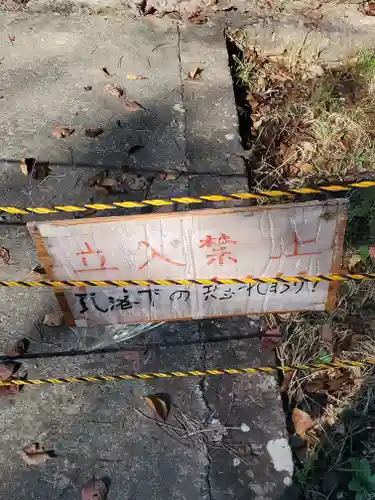 立入禁止
孔落下の恐れあり!